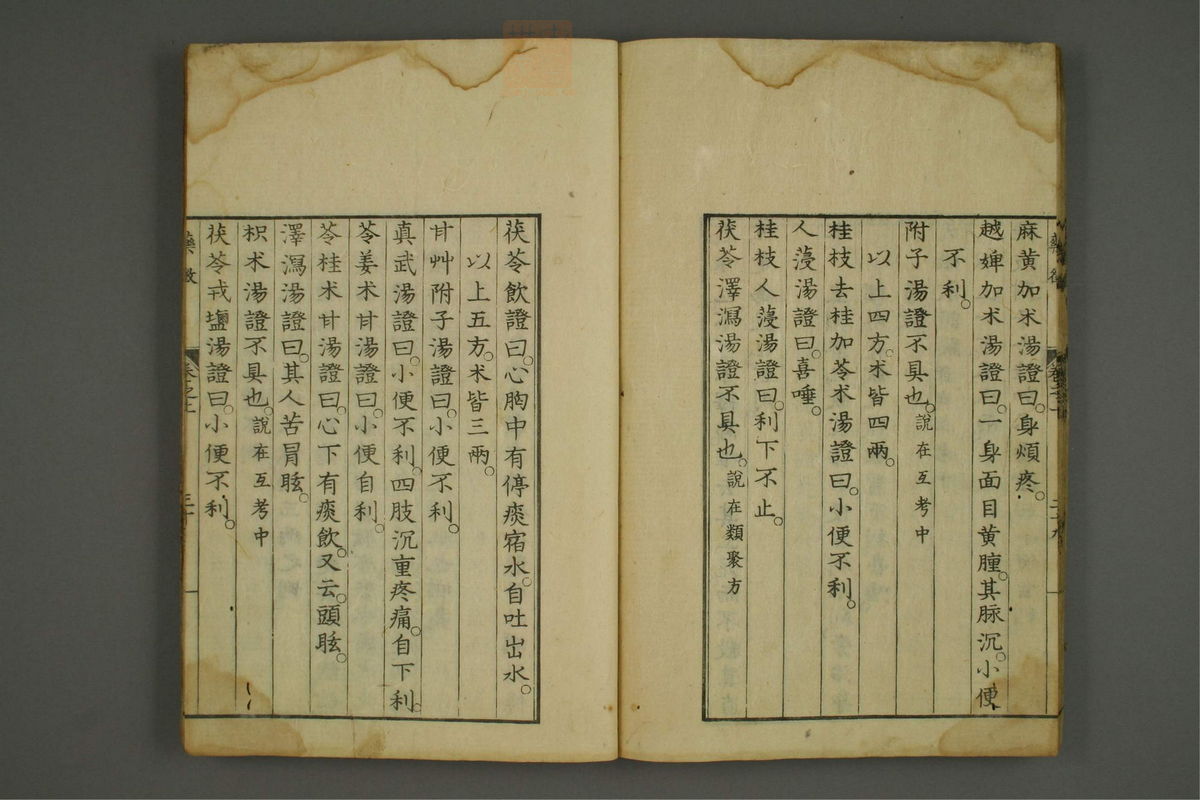 麻黄加朮湯證曰。身煩疼。
越婢加朮湯證曰。一身面目黄腫。其脉沉。小便
不利。
附子湯證不具也。說在互考中
以上四方。朮皆四兩。
桂枝去桂加苓朮湯證曰。小便不利。
人蓡湯證曰。喜唾。
桂枝人蓡湯證曰。利下不止。
茯苓澤瀉湯證不具也。說在類聚方
茯苓飲證曰。心胸中有停痰宿水。自吐出水。
以上五方。朮皆三兩。
甘艸附子湯證曰。小便不利。
真武湯證曰。小便不利。四肢沉重疼痛。自下利。
苓姜朮甘湯證曰。小便自利。
苓桂朮甘湯證曰。心下有痰飲。又云。頭眩。
澤瀉湯證曰。其人苦冒眩。
枳朮湯證不具也。說在互考中
茯苓戎鹽湯證曰。小便不利。